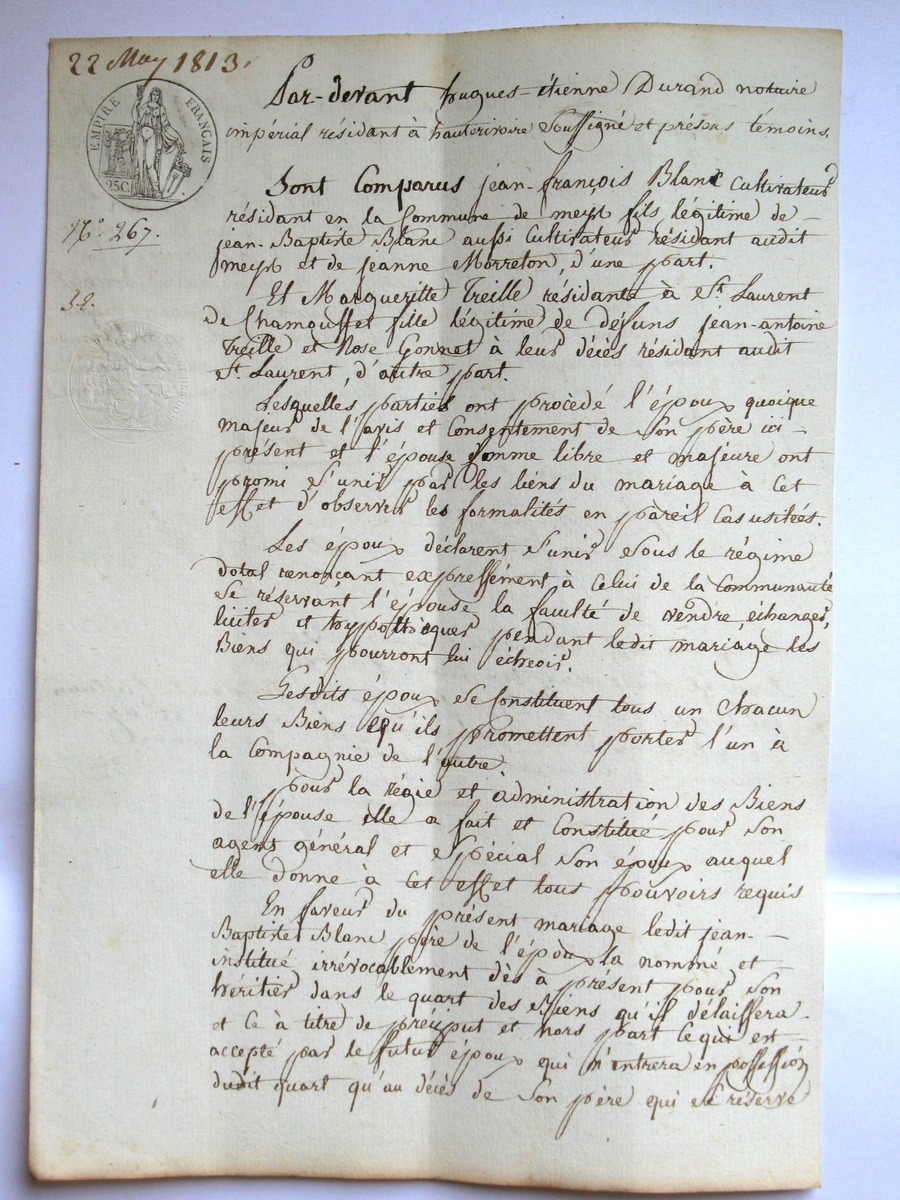 22 May 1813.
EMPIRE FRANÇAIS
25C.
Par-devant hugues-étienne Durand notaire
impérial résidant à hauterivoire Soussigné et présens témoins.
N.o 267.
Sont Comparus jean-françois Blanc Cultivateur
résidant en la Commune de meys fils légitime de
jean-Baptiste Blanc aussi Cultivateur résidant audit
meys et de jeanne Morreton, d'une part.
Et Margueritte Treille résidante à St. Laurent
de Chamousset fille légitime de défuns jean-antoine
Treille et Rose Gonnet à leur décès résidant audit
St. Laurent, d'autre part.
Lesquelles parties ont procédé l'époux quoique
majeur de l'avis et Consentement de Son père ici
présent et l'épouse Comme libre et majeure ont
promi S'unir par les liens du mariage à Cet
effet d'observer les formalités en pareil Cas usitées.
Les époux déclarent S'unir Sous le régime
dotal renonçant expressément à Celui de la Communauté
Se réservant l'épouse la faculté de vendre, échanger,
liciter et hypothéquer pendant ledit mariage les
Biens qui pourront lui échoir.
Lesdits époux Se Constituent tous un Chacun
leurs Biens qu'ils promettent porter l'un à
la Compagnie de l'autre
pour la régie et administration des Biens
de l'épouse elle a fait et Constitué pour Son
agent général et Spécial Son époux auquel
elle donne à Cet effet tous pouvoirs requis
En faveur du présent mariage ledit jean-
Baptiste Blanc père de l'époux la nommé et
institué irrévocablement dès à présent pour Son
héritier dans le quart des Biens qu'il délaissera
et Ce à titre de préciput et hors part Ce qui est
accepté par le futur époux qui n'entrera en possession
dudit quart qu'au décès de Son père qui Se réserve